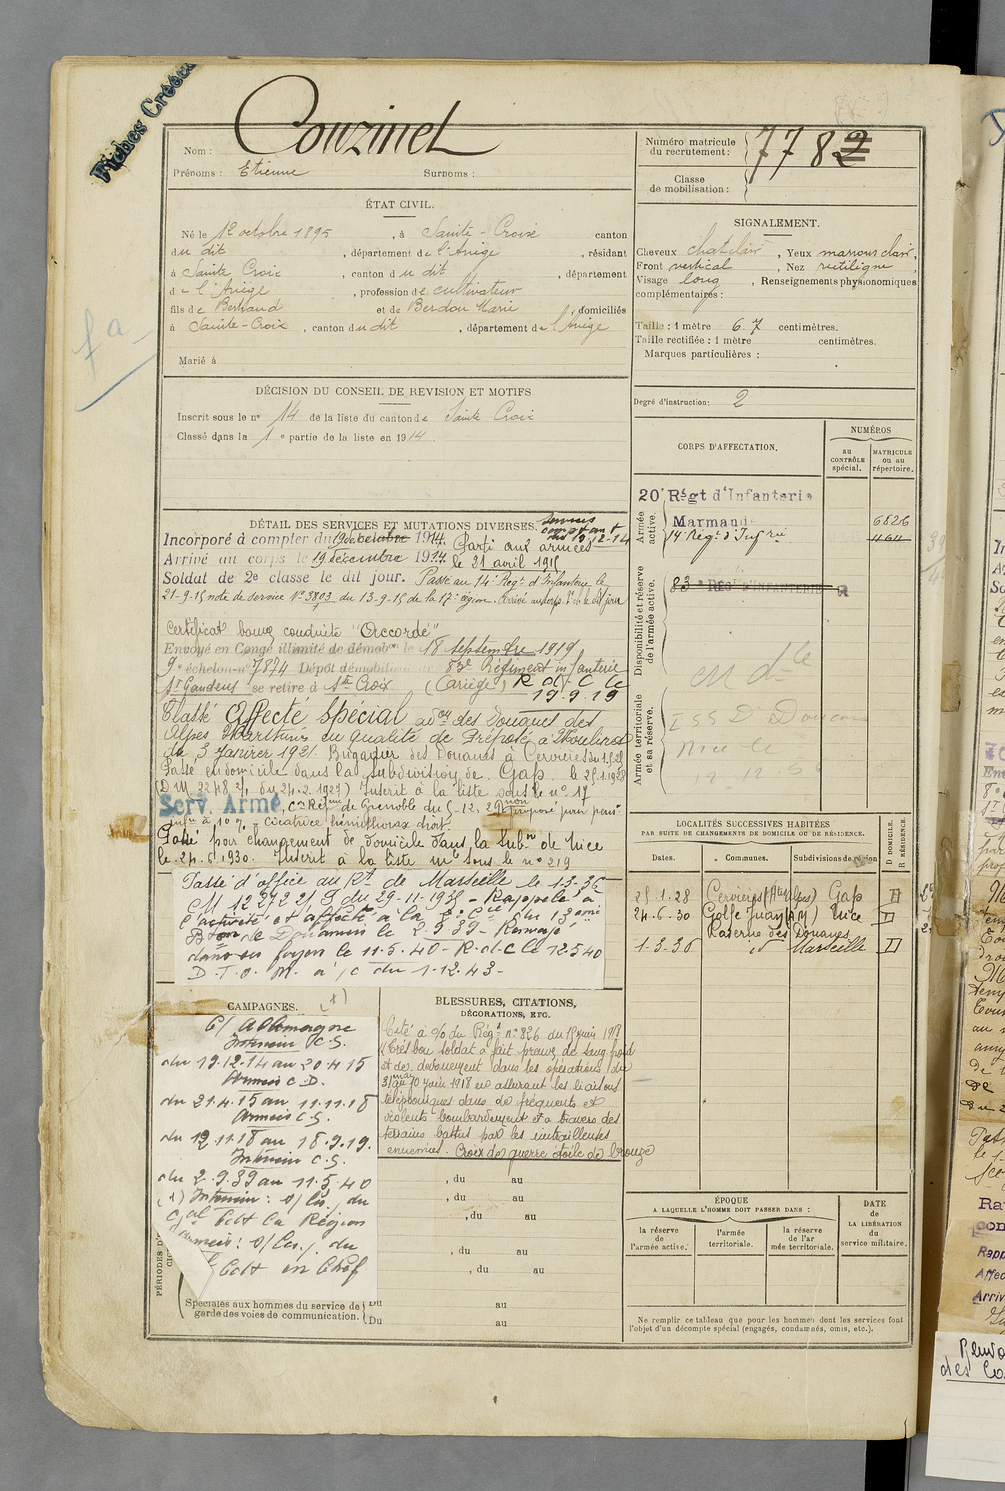 Fiches Créées
Nom : Couzinet
Prénoms : Etienne Surnoms :
Numéro matricule du recrutement : 7782
Classe de mobilisation :
ÉTAT CIVIL.
Né le 12 octobre 1895, à Sainte-Croix canton
du dit, département de l'Ariège, résidant
à Sainte Croix, canton du dit, département
de l'Ariège, profession de cultivateur
fils de Bertrand et de Berdou Marie, domiciliés
à Sainte-Croix, canton du dit, département de l'Ariège
Marié à
SIGNALEMENT.
Cheveux chat clair, Yeux marrons clair,
Front vertical, Nez rectiligne,
Visage long, Renseignements physionomiques
complémentaires :
Taille : 1 mètre 67 centimètres.
Taille rectifiée : 1 mètre centimètres.
Marques particulières :
DÉCISION DU CONSEIL DE REVISION ET MOTIFS.
Inscrit sous le n° 14 de la liste du canton de Sainte Croix
Classé dans la 1e partie de la liste en 1914.
Degré d'instruction : 2
CORPS D'AFFECTATION.
NUMÉROS
au CONTRÔLE spécial.
MATRICULE ou au répertoire.
Armée active.
20e Régt d'Infanterie
Marmande 6826
14 Régt d'Infrie
Disponibilité et réserve de l'armée active.
83e RÉGt D'INFANTERIE
Armée territoriale et sa réserve.
DÉTAIL DES SERVICES ET MUTATIONS DIVERSES.
services comptant du 19-12-14
Incorporé à compter du 19 octobre 1914. Parti aux armées
Arrivé au corps le 19 décembre 1914. le 21 avril 1915
Soldat de 2e classe le dit jour. Passé au 14e Régt d'Infanterie le
21-9-15 note de service N° 3803 du 13-9-15 de la 17e région. Arrivé au corps le dit jour
Certificat bonne conduite "Accordé"
Envoyé en Congé illimité de démobon le 18 septembre 1919
9e échelon n° 7874 Dépôt démobilisateur 83e Régiment infanterie
St Gaudens se retire à Ste Croix (Ariège) R d C le
19.9.19
Classé Affecté Spécial admon des Douanes des
Alpes Maritimes en qualité de Préposé à Moulinet
du 3 Janvier 1921. Brigadier des Douanes à Cervières
Passé en domicile dans la subdivision de Gap. le 25.1.1928
Inscrit à la liste sous le n° 17
Serv. Armé, Con Réfme de Grenoble du 5-12-29 non proposé pour pension
à 10% Cicatrice hémithorax droit.
Passé par changement de domicile dans la Subon de Nice
le 24.6.1930. Inscrit à la liste sous le n° 219
Passé d'office au Rt de Marseille le 1-3-36
M 12272 2/9 du 29-11-1935 - Rappelé à
l'activité et affecté à la 3e Cie du 13eme
Bon de Douaniers le 2.9.39 - Renvoyé
dans ses foyers le 11-5-40 - R.d.C le 12.5.40
D.T.O.M. à /c du 1-12-43-
LOCALITÉS SUCCESSIVES HABITÉES
PAR SUITE DE CHANGEMENTS DE DOMICILE OU DE RÉSIDENCE.
Dates. Communes. Subdivisions de région
D DOMICILE. R RÉSIDENCE.
25.1.28 Cervières (Htes Alpes) Gap D
24.6.30 Golfe Juan (AM) Nice D
Caserne des Douanes
1.3.36 id Marseille D
CAMPAGNES. (1)
C/ Allemagne
Intérieur C.S.
du 19-12-14 au 20-4-15
Armées C.D.
du 21.4.15 au 11.11.18
Armées C.S.
du 12.11.18 au 18.9.19.
Intérieur C.S.
du 2.9.39 au 11.5.40
(1) Intérieur : s/ du
Gal Cdt la Région
Armées : s/ du
Gal Cdt en Chef
BLESSURES, CITATIONS,
DÉCORATIONS, ETC.
Cité à l'o/ du Régt n° 826 du 18 juin 1918
"Très bon soldat a fait preuve de sang froid
et de dévouement dans les opérations du
31 mai au 10 juin 1918 en assurant les liaisons
téléphoniques dans de fréquents et
violents bombardements et à travers des
terrains battus par les mitrailleuses
ennemies. Croix de guerre étoile de bronze
, du au
, du au
, du au
, du au
, du au
Spéciales aux hommes du service de garde des voies de communication.
Du au
Du au
ÉPOQUE
A LAQUELLE L'HOMME DOIT PASSER DANS :
la réserve de l'armée active.
l'armée territoriale.
la réserve de l'armée territoriale.
DATE de LA LIBÉRATION du service militaire.
Ne remplir ce tableau que pour les hommes dont les services font
l'objet d'un décompte spécial (engagés, condamnés, omis, etc.).